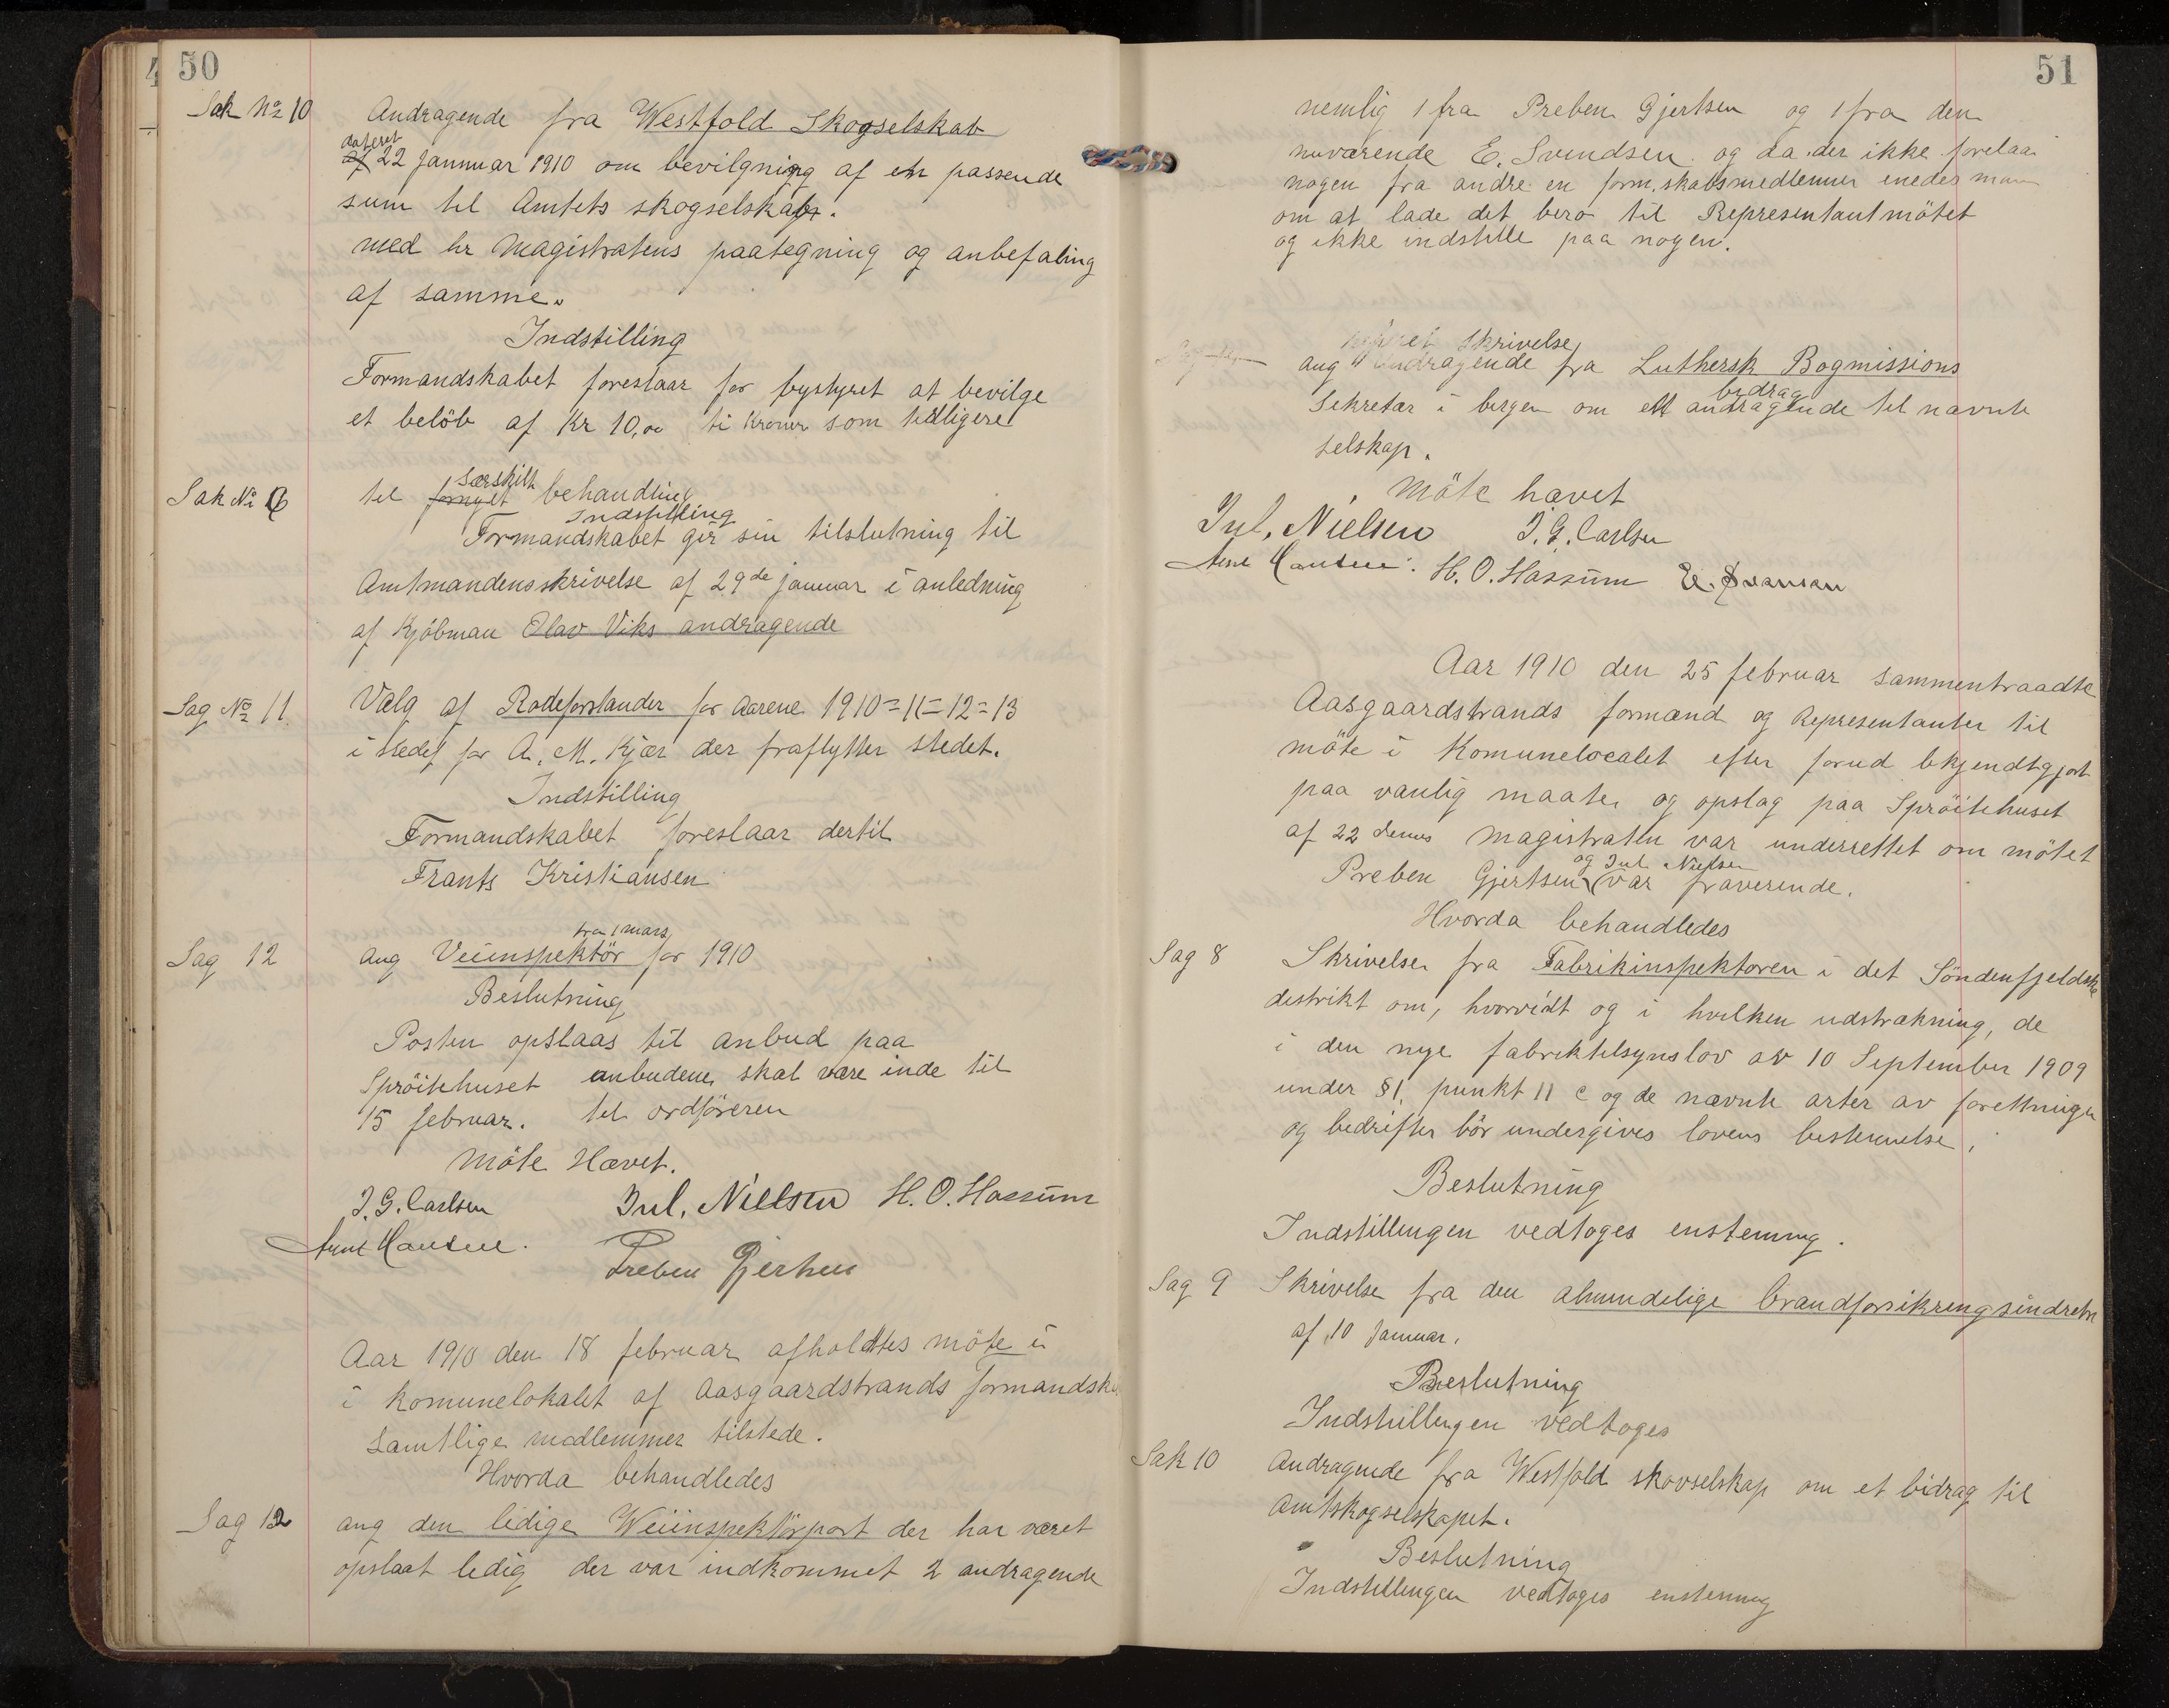 50
Sak No 10 Andragende fra Westfold Skogselskab
dateret
af 22 Januar 1910 om bevilgning af en passende
sum til Amtets skogselskab.
med hr Magistratens paategning og anbefaling
af samme.
Indstilling
Formandskabet foreslaar for bystyret at bevilge
et belöb af Kr 10,00 ti Kroner som tidligere
særskilt
Sak No til fornyet behandling
Indstilling
Formandskabet gir sin tilslutning til
Amtmandens skrivelse af 29de januar i anledning
af Kjöbman Olav Viks andragende
Sag No 11. Valg af Rodeforstander for Aarene 1910=11=12=13
i stedet for A. M. Kjær der fraflytter stedet.
Indstilling
Formandskabet foreslaar dertil
Frants Kristiansen
fra 1 mars
Sag 12 ang Veiinspektör for 1910
Beslutning
Posten opslaas til anbud paa
Spröitehuset anbudene skal være inde til
15 februar. til ordföreren
Möte Hævet.
J. G. Carlsen Jul. Nielsen H. O. Hassum
Arnt Hansen. Preben Gjertsen
Aar 1910 den 18 februar afholdtes möte i
i Komunelokalet af Aasgaardstrands formandsk
Samtlige medlemmer tilstede.
Hvorda behandledes
Sag 12 ang den ledige Weiinspektörpost der har været
opslaat ledig der var indkommet 2 andragende
51
nemlig 1 fra Preben Gjertsen og 1 fra den
nuværende E. Svendsen og da der ikke forelaa
nogen fra andre en form.skabsmedlemmer enedes man
om at lade det bero til Representantmötet
og ikke indstille paa nogen.
skrivelse
ang andragende fra Luthersk Bogmissions
bidrag
Sekretær i bergen om et andragende til nævnte
selskap.
Möte hævet
Jul. Nielsen J. G. Carlsen
Arnt Hansen. H. O. Hassum E. Svansen
Aar 1910 den 25 februar sammentraadte
Aasgaardstrands formænd og Representanter til
möte i Komunelocalet efter forud bkjendtgjort
paa vanlig maate og opslag paa Spröitehuset
af 22 dennes Magistraten var underrettet om mötet
og Jul Nielsen
Preben Gjertsen var fraverende.
Hvorda behandledes
Sag 8 Skrivelse fra Fabrikinspektoren i det Söndenfjeldske
destrikt om, hvorvidt og i hvilken udstrækning, de
i den nye fabriktilsynslov av 10 September 1909
under §1, punkt 11 c og de nævnte arter av forettninger
og bedrifter bör undergives lovens bestemelse.
Beslutning
Indstillingen vedtoges enstemig.
Sag 9 Skrivelse fra den almindelige brandforsikringsindretn
af 10 Januar.
Beslutning
Indstillingen vedtoges
Sak 10 Andragende fra Westfold skovselskap om et bidrag til
Amtskogselskapet.
Beslutning
Indstillingen vedtoges enstemig